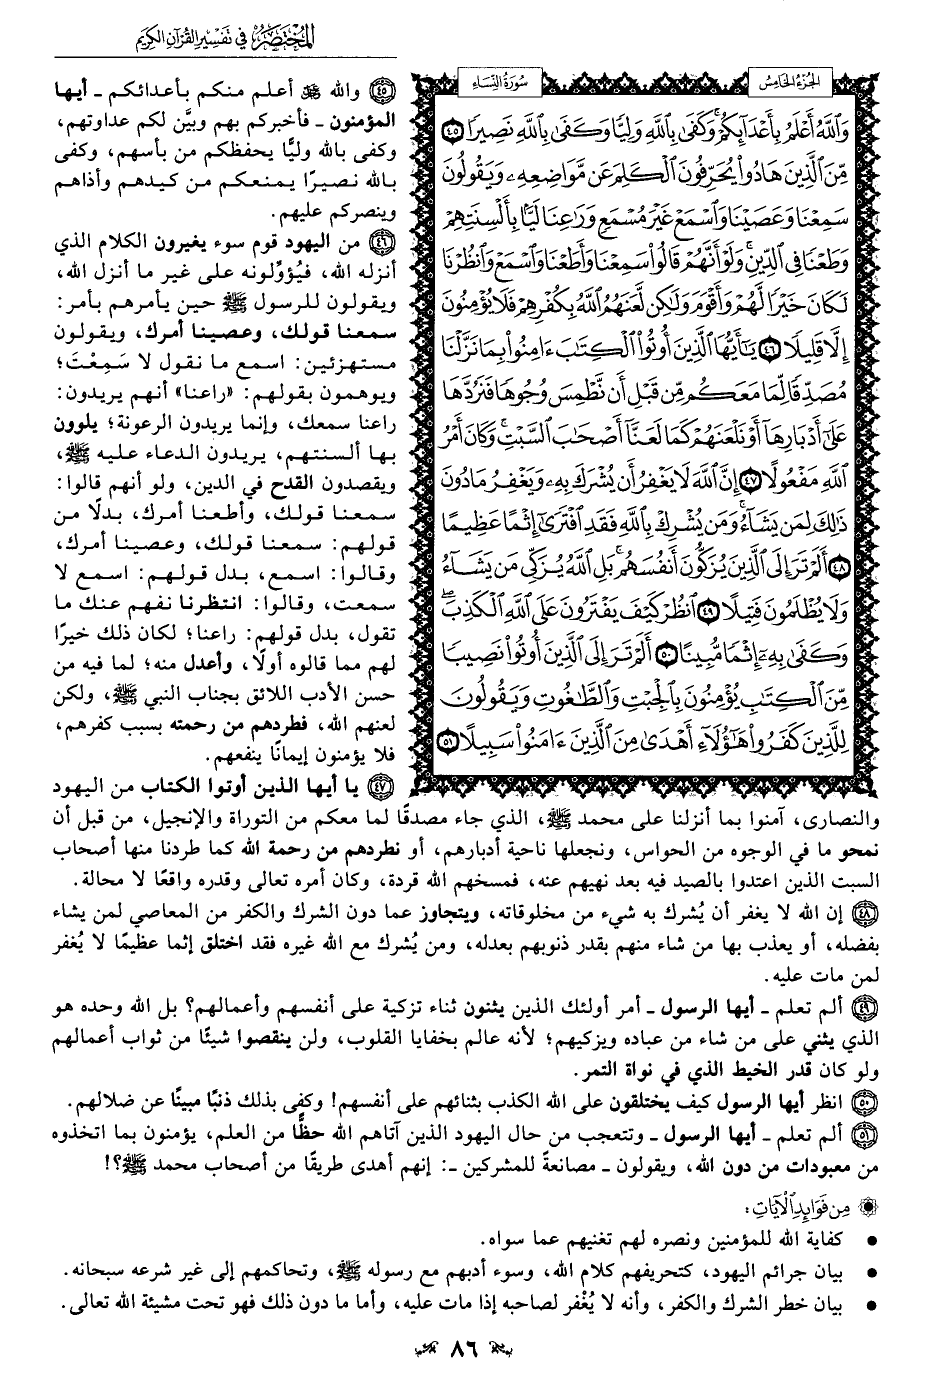 المختصر في تفسير القرآن الكريم
الجزء الخامس
سورة النساء
وَٱللَّهُ أَعْلَمُ بِأَعْدَآئِكُمْۚ وَكَفَىٰ بِٱللَّهِ وَلِيًّا وَكَفَىٰ بِٱللَّهِ نَصِيرًا ٤٥
مِّنَ ٱلَّذِينَ هَادُوا۟ يُحَرِّفُونَ ٱلْكَلِمَ عَن مَّوَاضِعِهِۦ وَيَقُولُونَ
سَمِعْنَا وَعَصَيْنَا وَٱسْمَعْ غَيْرَ مُسْمَعٍ وَرَٰعِنَا لَيًّۢا بِأَلْسِنَتِهِمْ
وَطَعْنًا فِى ٱلدِّينِۚ وَلَوْ أَنَّهُمْ قَالُوا۟ سَمِعْنَا وَأَطَعْنَا وَٱسْمَعْ وَٱنظُرْنَا
لَكَانَ خَيْرًا لَّهُمْ وَأَقْوَمَ وَلَٰكِن لَّعَنَهُمُ ٱللَّهُ بِكُفْرِهِمْ فَلَا يُؤْمِنُونَ
إِلَّا قَلِيلًا ٤٦ يَٰٓأَيُّهَا ٱلَّذِينَ أُوتُوا۟ ٱلْكِتَٰبَ ءَامِنُوا۟ بِمَا نَزَّلْنَا
مُصَدِّقًا لِّمَا مَعَكُم مِّن قَبْلِ أَن نَّطْمِسَ وُجُوهًا فَنَرُدَّهَا
عَلَىٰٓ أَدْبَارِهَآ أَوْ نَلْعَنَهُمْ كَمَا لَعَنَّآ أَصْحَٰبَ ٱلسَّبْتِۚ وَكَانَ أَمْرُ
ٱللَّهِ مَفْعُولًا ٤٧ إِنَّ ٱللَّهَ لَا يَغْفِرُ أَن يُشْرَكَ بِهِۦ وَيَغْفِرُ مَا دُونَ
ذَٰلِكَ لِمَن يَشَآءُۚ وَمَن يُشْرِكْ بِٱللَّهِ فَقَدِ ٱفْتَرَىٰٓ إِثْمًا عَظِيمًا
٤٨ أَلَمْ تَرَ إِلَى ٱلَّذِينَ يُزَكُّونَ أَنفُسَهُمۚ بَلِ ٱللَّهُ يُزَكِّى مَن يَشَآءُ
وَلَا يُظْلَمُونَ فَتِيلًا ٤٩ ٱنظُرْ كَيْفَ يَفْتَرُونَ عَلَى ٱللَّهِ ٱلْكَذِبَۖ
وَكَفَىٰ بِهِۦٓ إِثْمًا مُّبِينًا ٥٠ أَلَمْ تَرَ إِلَى ٱلَّذِينَ أُوتُوا۟ نَصِيبًا
مِّنَ ٱلْكِتَٰبِ يُؤْمِنُونَ بِٱلْجِبْتِ وَٱلطَّٰغُوتِ وَيَقُولُونَ
لِلَّذِينَ كَفَرُوا۟ هَٰٓؤُلَآءِ أَهْدَىٰ مِنَ ٱلَّذِينَ ءَامَنُوا۟ سَبِيلًا ٥١
٤٥ والله ﷻ أعلم منكم بأعدائكم ـ أيها
المؤمنون ـ فأخبركم بهم وبيَّن لكم عداوتهم،
وكفى بالله وليًّا يحفظكم من بأسهم، وكفى
بالله نصيرًا يمنعكم من كيدهم وأذاهم
وينصركم عليهم.
٤٦ من اليهود قوم سوء يغيرون الكلام الذي
أنزله الله، فيُؤوِّلونه على غير ما أنزل الله،
ويقولون للرسول ﷺ حين يأمرهم بأمر:
سمعنا قولك، وعصينا أمرك، ويقولون
مستهزئين: اسمع ما نقول لا سَمِعْتَ؛
ويوهمون بقولهم: «راعنا» أنهم يريدون:
راعنا سمعك، وإنما يريدون الرعونة؛ يلوون
بها ألسنتهم، يريدون الدعاء عليه ﷺ،
ويقصدون القدح في الدين، ولو أنهم قالوا:
سمعنا قولك، وأطعنا أمرك، بدلًا من
قولهم: سمعنا قولك، وعصينا أمرك،
وقالوا: اسمع، بدل قولهم: اسمع لا
سمعت، وقالوا: انتظرنا نفهم عنك ما
تقول، بدل قولهم: راعنا؛ لكان ذلك خيرًا
لهم مما قالوه أولًا، وأعدل منه؛ لما فيه من
حسن الأدب اللائق بجناب النبي ﷺ، ولكن
لعنهم الله، فطردهم من رحمته بسبب كفرهم،
فلا يؤمنون إيمانًا ينفعهم.
٤٧ يا أيها الذين أوتوا الكتاب من اليهود
والنصارى، آمنوا بما أنزلنا على محمد ﷺ، الذي جاء مصدقًا لما معكم من التوراة والإنجيل، من قبل أن
نمحو ما في الوجوه من الحواس، ونجعلها ناحية أدبارهم، أو نطردهم من رحمة الله كما طردنا منها أصحاب
السبت الذين اعتدوا بالصيد فيه بعد نهيهم عنه، فمسخهم الله قردة، وكان أمره تعالى وقدره واقعًا لا محالة.
٤٨ إن الله لا يغفر أن يُشرك به شيء من مخلوقاته، ويتجاوز عما دون الشرك والكفر من المعاصي لمن يشاء
بفضله، أو يعذب بها من شاء منهم بقدر ذنوبهم بعدله، ومن يُشرك مع الله غيره فقد اختلق إثما عظيمًا لا يُغفر
لمن مات عليه.
٤٩ ألم تعلم ـ أيها الرسول ـ أمر أولئك الذين يثنون ثناء تزكية على أنفسهم وأعمالهم؟ بل الله وحده هو
الذي يثني على من شاء من عباده ويزكيهم؛ لأنه عالم بخفايا القلوب، ولن ينقصوا شيئًا من ثواب أعمالهم
ولو كان قدر الخيط الذي في نواة التمر.
٥٠ انظر أيها الرسول كيف يختلقون على الله الكذب بثنائهم على أنفسهم! وكفى بذلك ذنبًا مبينًا عن ضلالهم.
٥١ ألم تعلم ـ أيها الرسول ـ وتتعجب من حال اليهود الذين آتاهم الله حظًّا من العلم، يؤمنون بما اتخذوه
من معبودات من دون الله، ويقولون ـ مصانعةً للمشركين ـ: إنهم أهدى طريقًا من أصحاب محمد ﷺ؟!
من فوائد الآيات:
• كفاية الله للمؤمنين ونصره لهم تغنيهم عما سواه.
• بيان جرائم اليهود، كتحريفهم كلام الله، وسوء أدبهم مع رسوله ﷺ، وتحاكمهم إلى غير شرعه سبحانه.
• بيان خطر الشرك والكفر، وأنه لا يُغْفر لصاحبه إذا مات عليه، وأما ما دون ذلك فهو تحت مشيئة الله تعالى.
٨٦